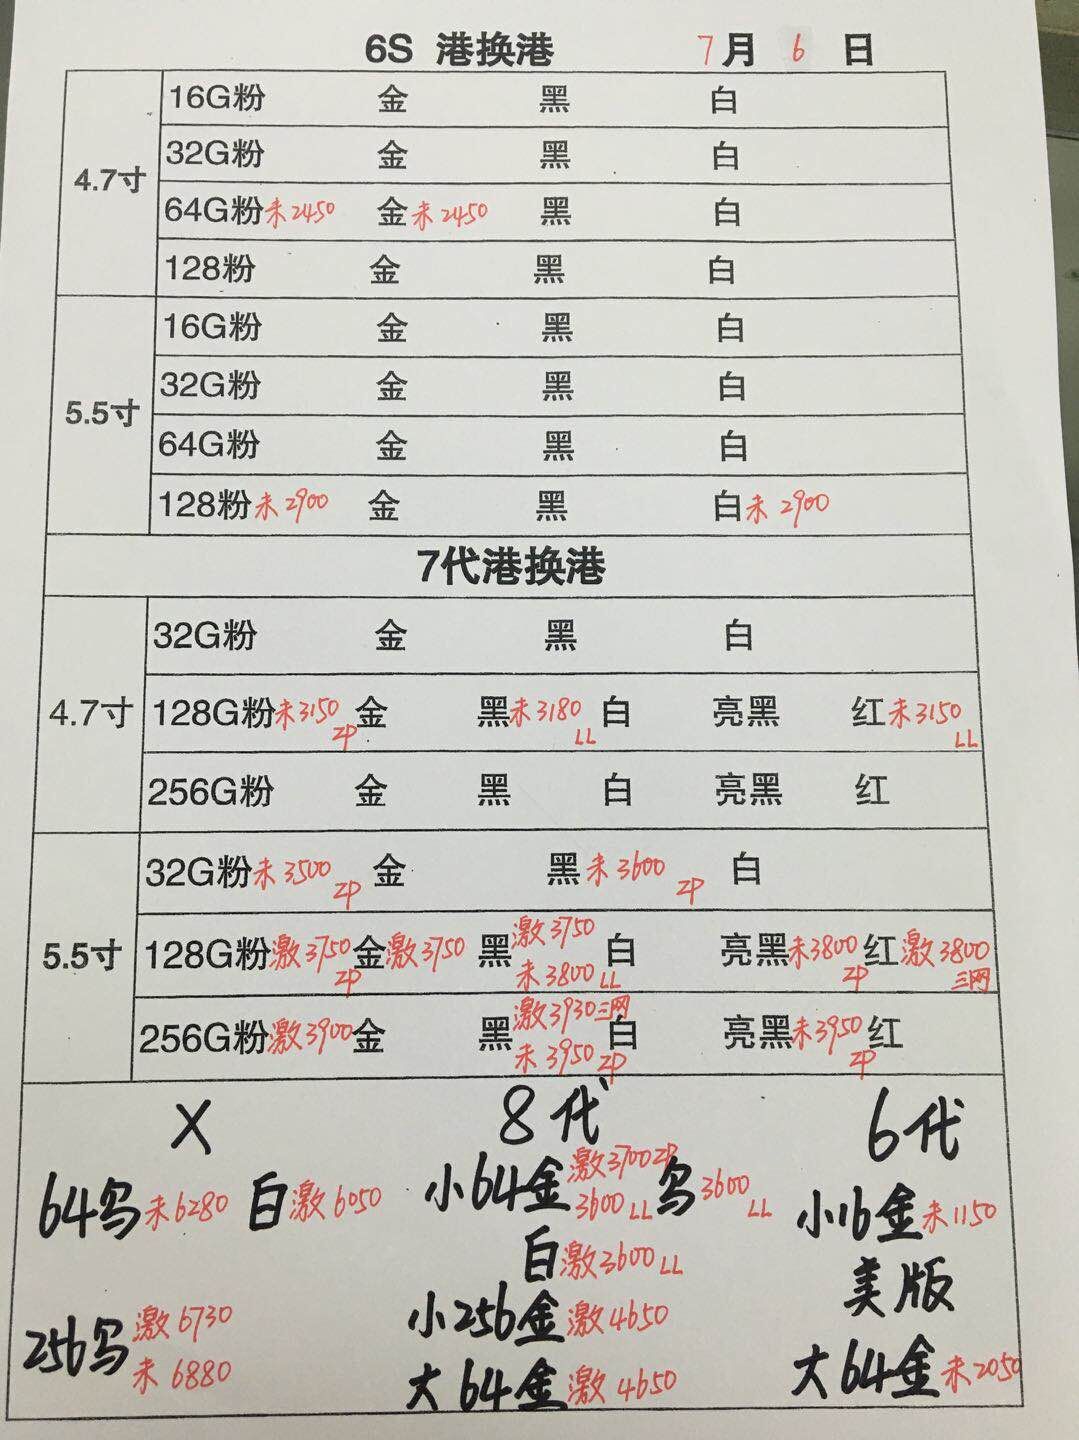 6S 港换港 7月6日
4.7寸
16G粉 金 黑 白
32G粉 金 黑 白
64G粉未2450 金未2450 黑 白
128粉 金 黑 白
5.5寸
16G粉 金 黑 白
32G粉 金 黑 白
64G粉 金 黑 白
128粉未2900 金 黑 白未2900
7代港换港
4.7寸
32G粉 金 黑 白
128G粉未3150ZP 金 黑未3180LL 白 亮黑 红未3150LL
256G粉 金 黑 白 亮黑 红
5.5寸
32G粉未3500ZP 金 黑未3600ZP 白
128G粉激3750ZP 金激3750 黑激3750未3800LL 白 亮黑未3800ZP 红激3800三网
256G粉激3900 金 黑激3930三网未3950ZP 白 亮黑未3950ZP 红
X
64乌未6280 白激6050
256乌激6730
未6880
8代
小64金激3700ZP 3600LL 乌3600LL
白激3600LL
小256金激4650
大64金激4650
6代
小16金未1150
美版
大64金未2050